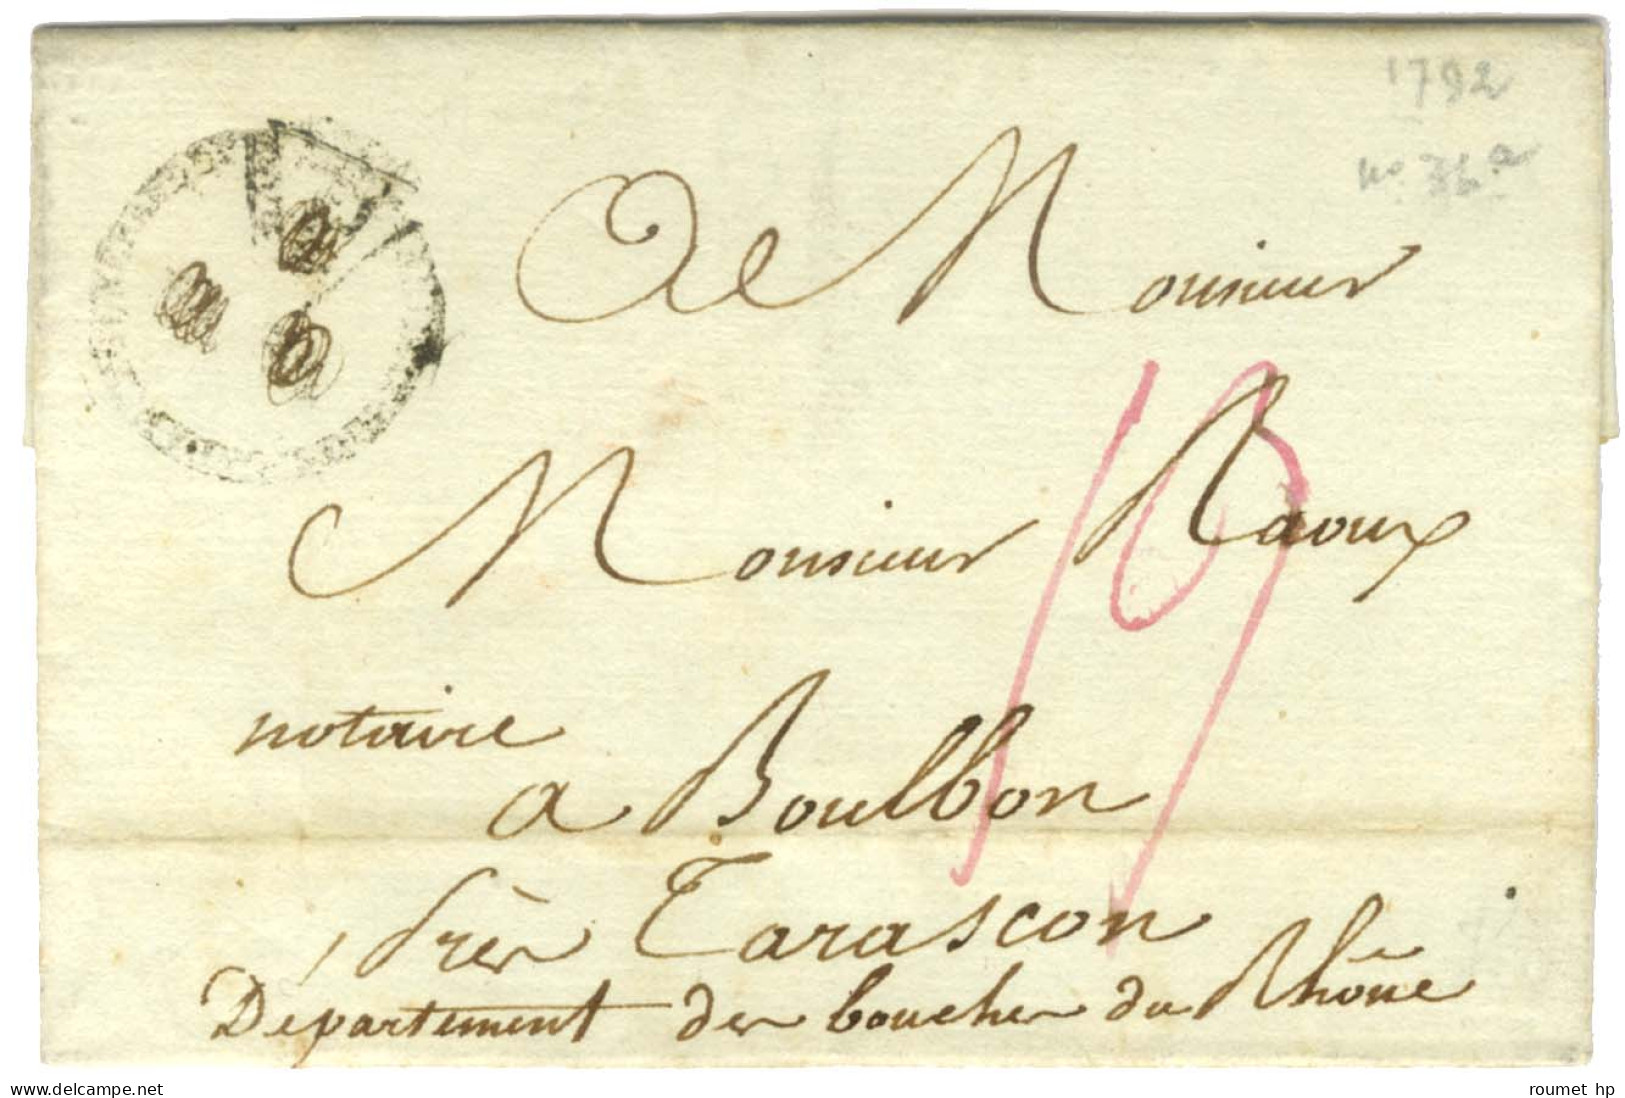 1792
no 36a
A Monsieur
Monsieur Raoux
19
notaire
a Boulbon
près Tarascon
Département des bouches du Rhône
www.delcampe.net
roumet hp